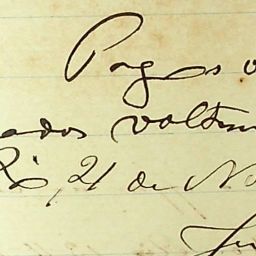 Pagos
ados voltem
Rio, 21 de No